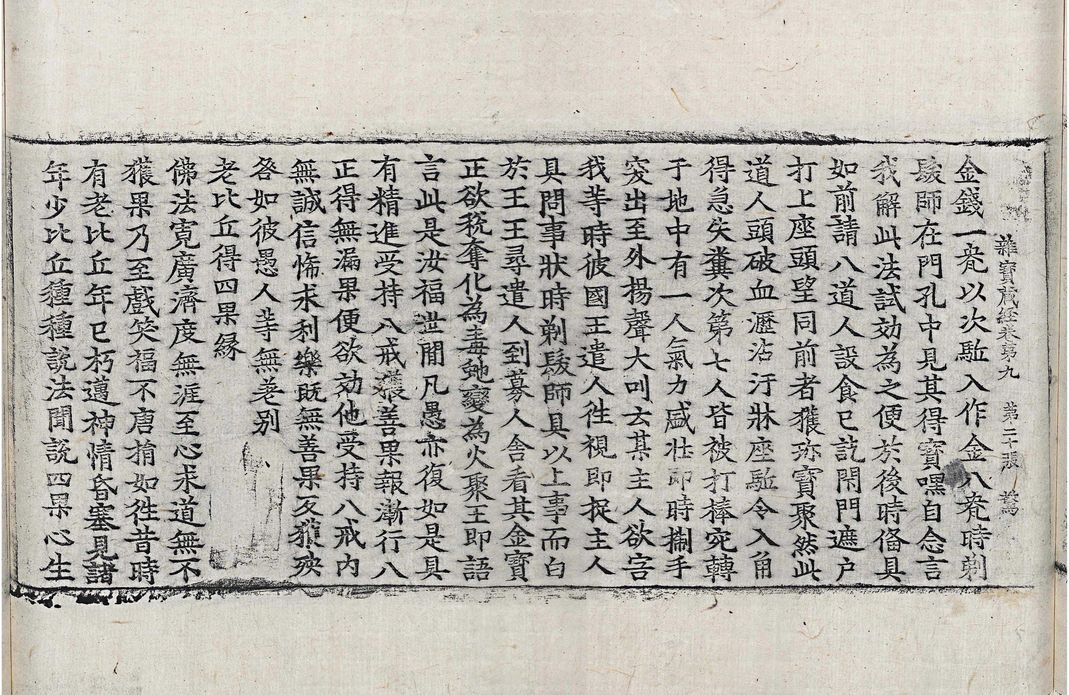 雜寶藏経卷苐九　苐二十張
金錢一瓫以次駈入作金八瓫時剃
髮師在門孔中見其得寶嘿自念言
我解此法試効為之便於後時俻具
如前請八道人設食已訖閇門遮户
打上座頭望同前者獲珎寶聚然此
道人頭破血瀝沾汙牀座駈令入角
得急失糞次第七人皆被打棒宛轉
于地中有一人氣力盛壯即時擲手
突出至外揚聲大叫云某主人欲害
我等時彼國王遣人徃視即捉主人
具問事狀時剃髮師具以上事而白
於王王尋遣人到募人舍看其金寶
正欲税奪化為毒虵變為火聚王即語
言此是汝福世間凡愚亦復如是具
有精進受持八戒獲善果報漸行八
正得無漏果便欲効他受持八戒内
無誠信悕求利樂既無善果反獲殃
咎如彼愚人等無差别
老比丘得四果緣
佛法寬廣濟度無涯至心求道無不
獲果乃至戲笑福不唐捐如徃昔時
有老比丘年已朽邁神情昏塞見諸
年少比丘種種説法聞說四果心生